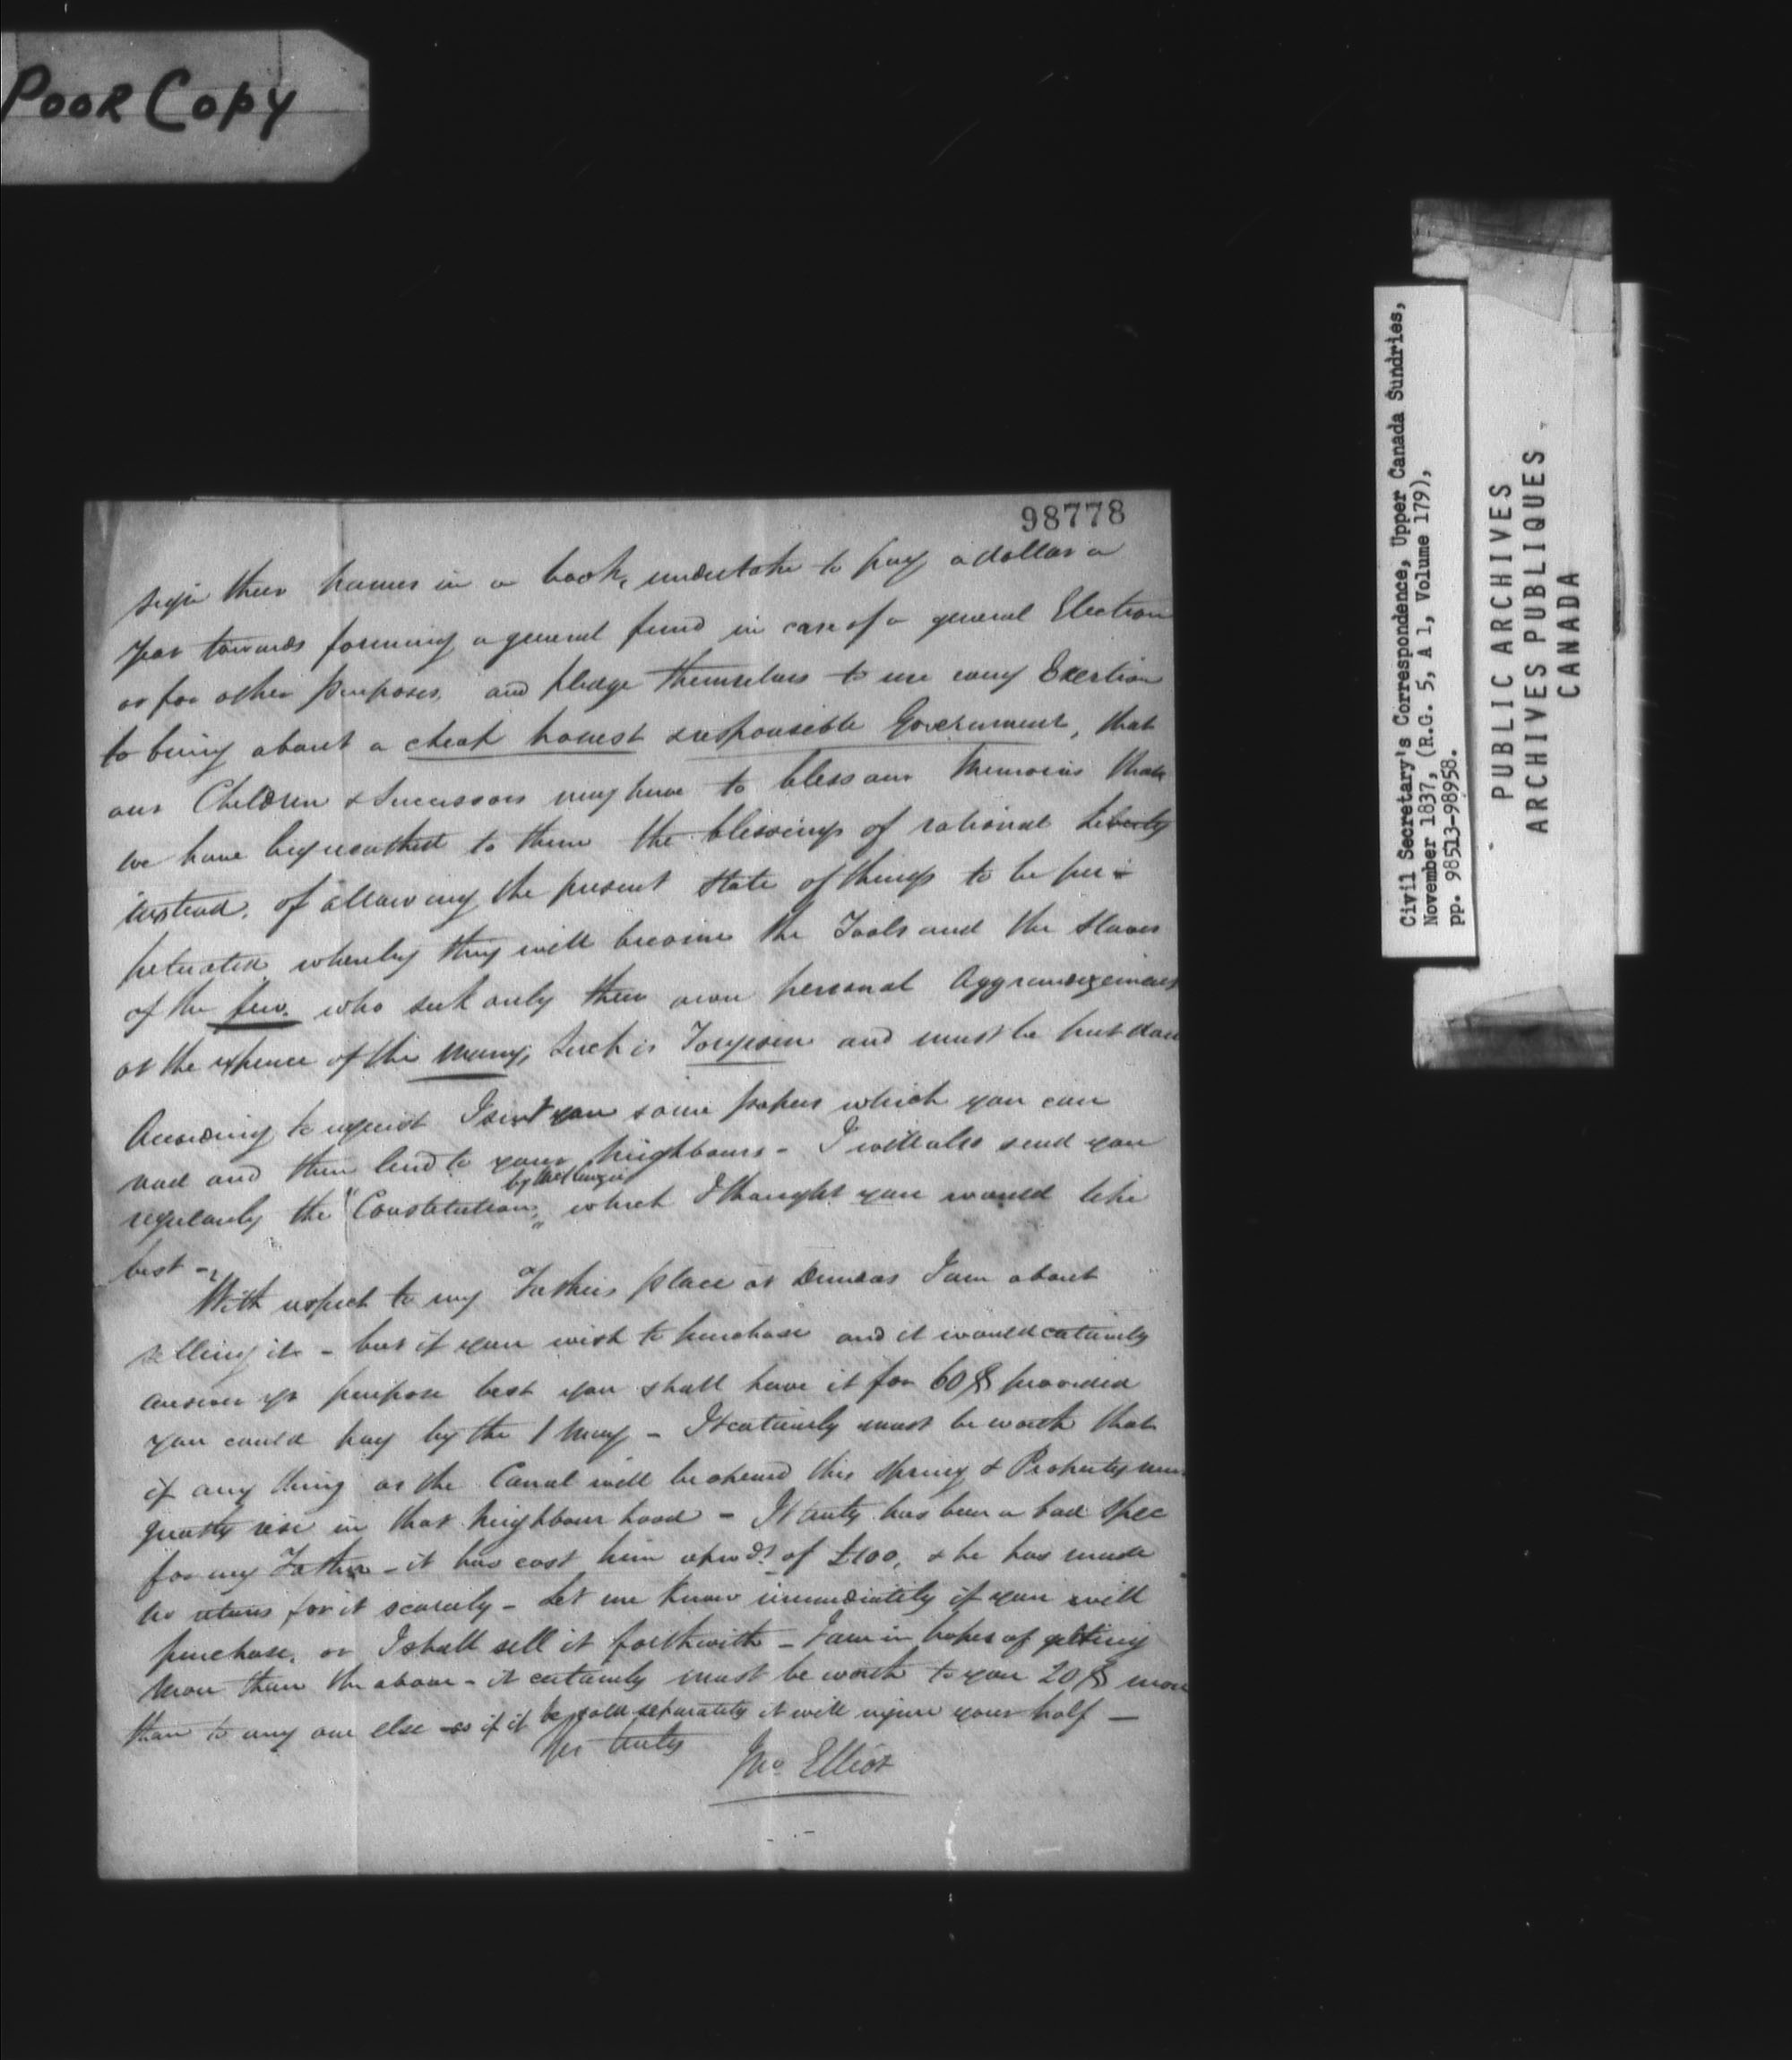 POOR COPY
98778
sign their names in a book, undertake to pay a dollar a
year towards forming a general fund in case of a general Election
or for other purposes, and pledge themselves to use every Exertion
to bring about a cheap honest & responsible Government, that
our Children & Successors may have to bless our Memories that
we have bequeathed to them the blessings of rational Liberty
instead, of allowing the present state of things to be per-
petuated whereby they will become the Tools and the Slaves
of the few. who seek only their own personal Aggrandizement
at the expence of the Many, Such is Toryism and must be put down
According to request I sent you some papers which you can
read and then lend to your neighbours - I will also send you
by McKenzie
regularly the "Constitution," which I thought you would like
best -
With respect to my Fathers place at Dundas I am about
selling it - but if you wish to purchase and it would certainly
answer yr purpose best you shall have it for 60$ provided
you could pay by the 1 May - It certainly must be worth that
if any thing as the Canal will be opened this spring & Property must
greatly rise in that neighbourhood - It truly has been a bad spec
for my Father - it has cost him upwds of £100, & he has made
no return for it scarcely - Let me know immediately if you will
purchase, or I shall sell it forthwith - I am in hopes of getting
more than the above - it certainly must be worth to you 20$ more
than to any one else as if it be sold separately it will injure your half -
Yrs truly
Jno Elliot
Civil Secretary's Correspondence, Upper Canada Sundries,
November 1837, (R.G. 5, A 1, Volume 179),
pp. 98513-98958.
PUBLIC ARCHIVES
ARCHIVES PUBLIQUES
CANADA